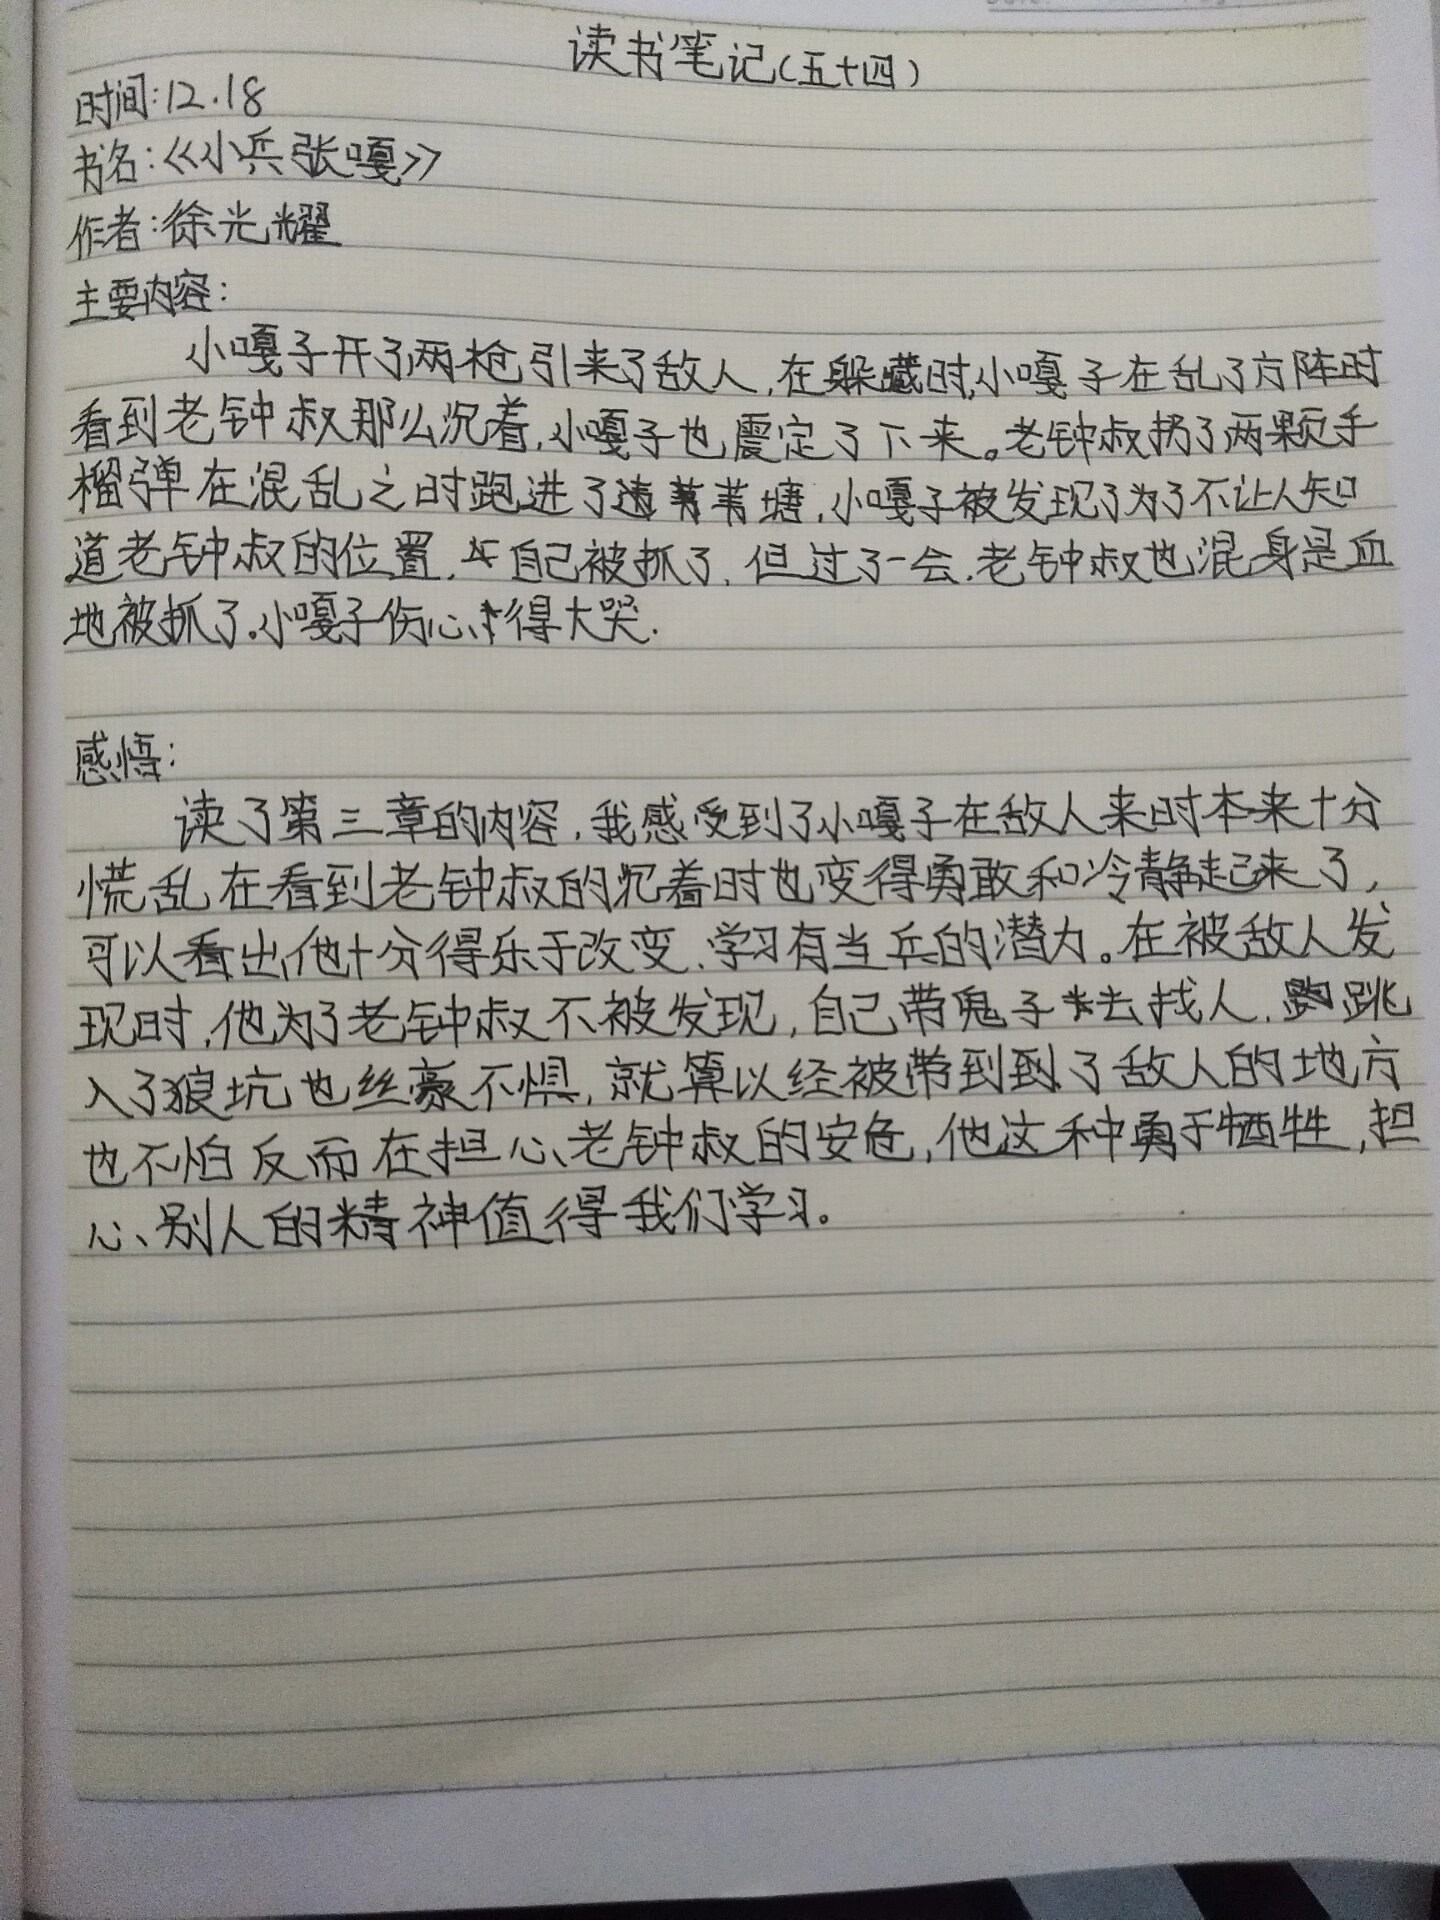 读书笔记(五十四)
时间:12.18
书名:《小兵张嘎》
作者:徐光耀
主要内容:
小嘎子开了两枪引来了敌人,在躲藏时,小嘎子在乱了方阵时
看到老钟叔那么沉着,小嘎子也震定了下来。老钟叔扔了两颗手
榴弹在混乱之时跑进了苇塘,小嘎子被发现了为了不让人知
道老钟叔的位置,自己被抓了,但过了一会,老钟叔也混身是血
地被抓了。小嘎子伤心得大哭.
感悟:
读了第三章的内容,我感受到了小嘎子在敌人来时本来十分
慌乱在看到老钟叔的沉着时也变得勇敢和冷静起来了,
可以看出,他十分得乐于改变、学习有当兵的潜力。在被敌人发
现时,他为了老钟叔不被发现,自己带鬼子去找人,跳
入了狼坑也丝豪不惧,就算以经被带到到了敌人的地方
也不怕反而在担心老钟叔的安危,他这种勇于牺牲,担
心别人的精神值得我们学习。